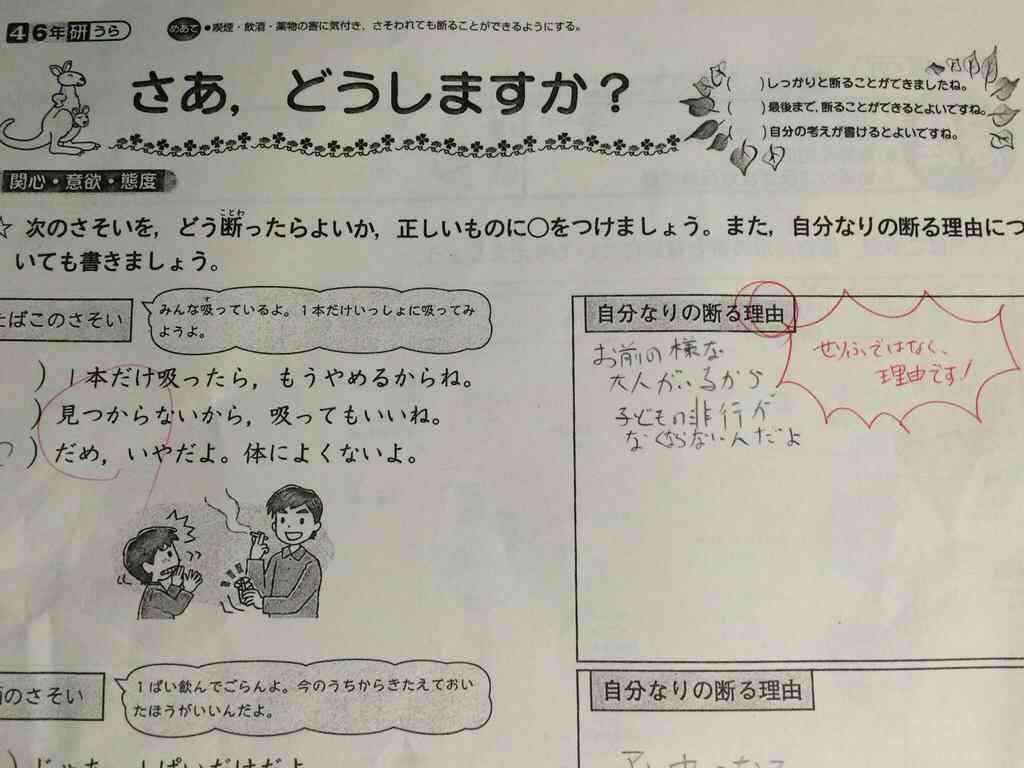 4 6年 研 うら
めあて ●喫煙・飲酒・薬物の害に気付き、さそわれても断ることができるようにする。
さあ，どうしますか？
(　　)しっかりと断ることができましたね。
(　　)最後まで，断ることができるとよいですね。
(　　)自分の考えが書けるとよいですね。
関心・意欲・態度
☆ 次のさそいを，どう断ったらよいか，正しいものに○をつけましょう。また，自分なりの断る理由につ
ことわ
いても書きましょう。
たばこのさそい
みんな吸っているよ。１本だけいっしょに吸ってみ
す
ようよ。
）１本だけ吸ったら，もうやめるからね。
）見つからないから，吸ってもいいね。
○）だめ，いやだよ。体によくないよ。
自分なりの断る理由
お前の様な
大人がいるから
子どもの非行が
なくならないんだよ
せりふではなく、
理由です！
のさそい
１ぱい飲んでごらんよ。今のうちからきたえておい
たほうがいいんだよ。
自分なりの断る理由